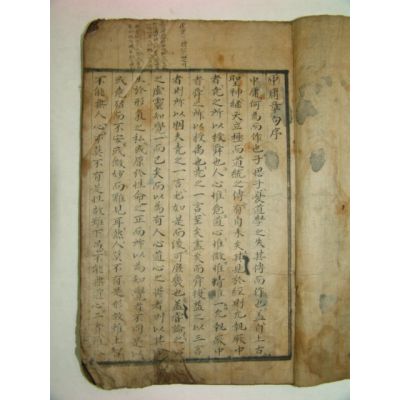 中庸章句序
中庸何爲而作也子思子憂道學之失其傳而作也盖自上古
聖神繼天立極而道統之傳有自來矣其見於經則允執厥中
者堯之所以授舜也人心惟危道心惟微惟精惟一允執厥中
者舜之所以授禹也堯之一言至矣盡矣而舜復益之以三言
者則所以明夫堯之一言必如是而後可庶幾也盖嘗論之心
之虛靈知覺一而已矣而以爲有人心道心之異者則以其或
生於形氣之私或原於性命之正而所以爲知覺者不同是以
或危殆而不安或微妙而難見耳然人莫不有是形故雖上智
不能無人心亦莫不有是性故雖下愚不能無道心二者雜